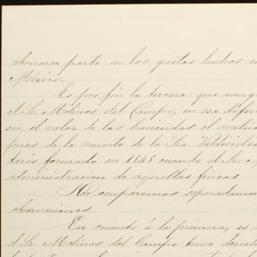 abonarse parte en los gastos hechos en
México.
Es por fin la tercera: que ning
el Sr. Molinos del Campo, en esa
en el valor de las haciendas el
pues de la muerte de la Sra.
tario formado en 1848 cuando el Sr. M
administracion de aquellas fincas
Nos ocuparemos separadamen
observaciones.
En cuanto á la primera, es
el Sr. Molinos del Campo tuvo